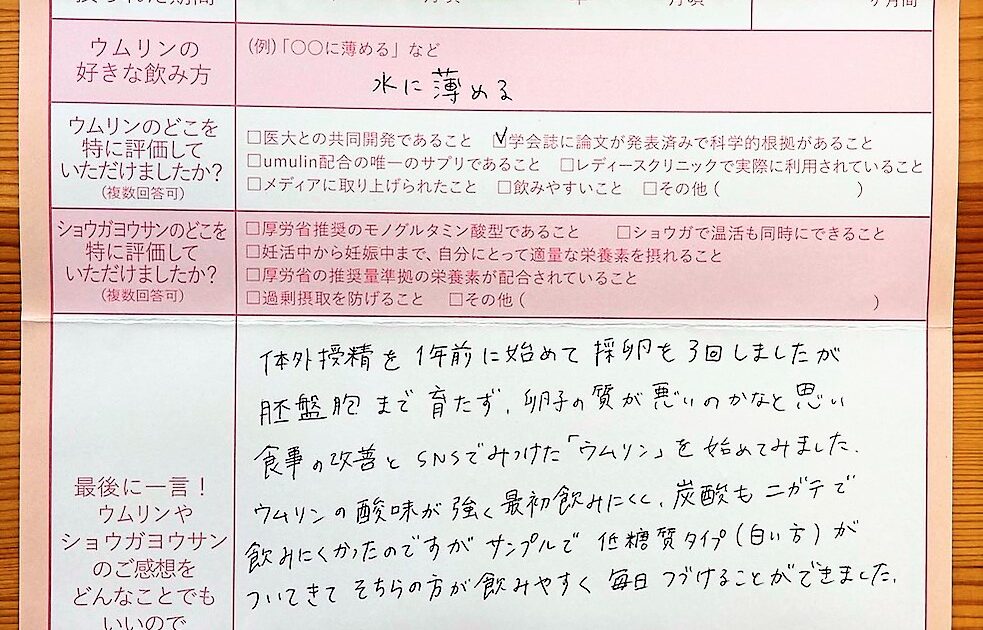 月頃 年 月頃 ヶ月間
ウムリンの
好きな飲み方
(例)「〇〇に薄める」など
水に薄める
ウムリンのどこを
特に評価して
いただけましたか?
(複数回答可)
□医大との共同開発であること ☑学会誌に論文が発表済みで科学的根拠があること
□umulin配合の唯一のサプリであること □レディースクリニックで実際に利用されていること
□メディアに取り上げられたこと □飲みやすいこと □その他( )
ショウガヨウサンのどこを
特に評価して
いただけましたか?
(複数回答可)
□厚労省推奨のモノグルタミン酸型であること □ショウガで温活も同時にできること
□妊活中から妊娠中まで、自分にとって適量な栄養素を摂れること
□厚労省の推奨量準拠の栄養素が配合されていること
□過剰摂取を防げること □その他( )
最後に一言!
ウムリンや
ショウガヨウサン
のご感想を
どんなことでも
いいので
体外授精を1年前に始めて採卵も3回しましたが
胚盤胞まで育たず、卵子の質が悪いのかなと思い
食事の改善とSNSでみつけた「ウムリン」を始めてみました。
ウムリンの酸味が強く最初飲みにくく、炭酸もニガテで
飲みにくかったのですがサンプルで低糖質タイプ(白い方)が
ついてきてそちらの方が飲みやすく毎日つづけることができました。